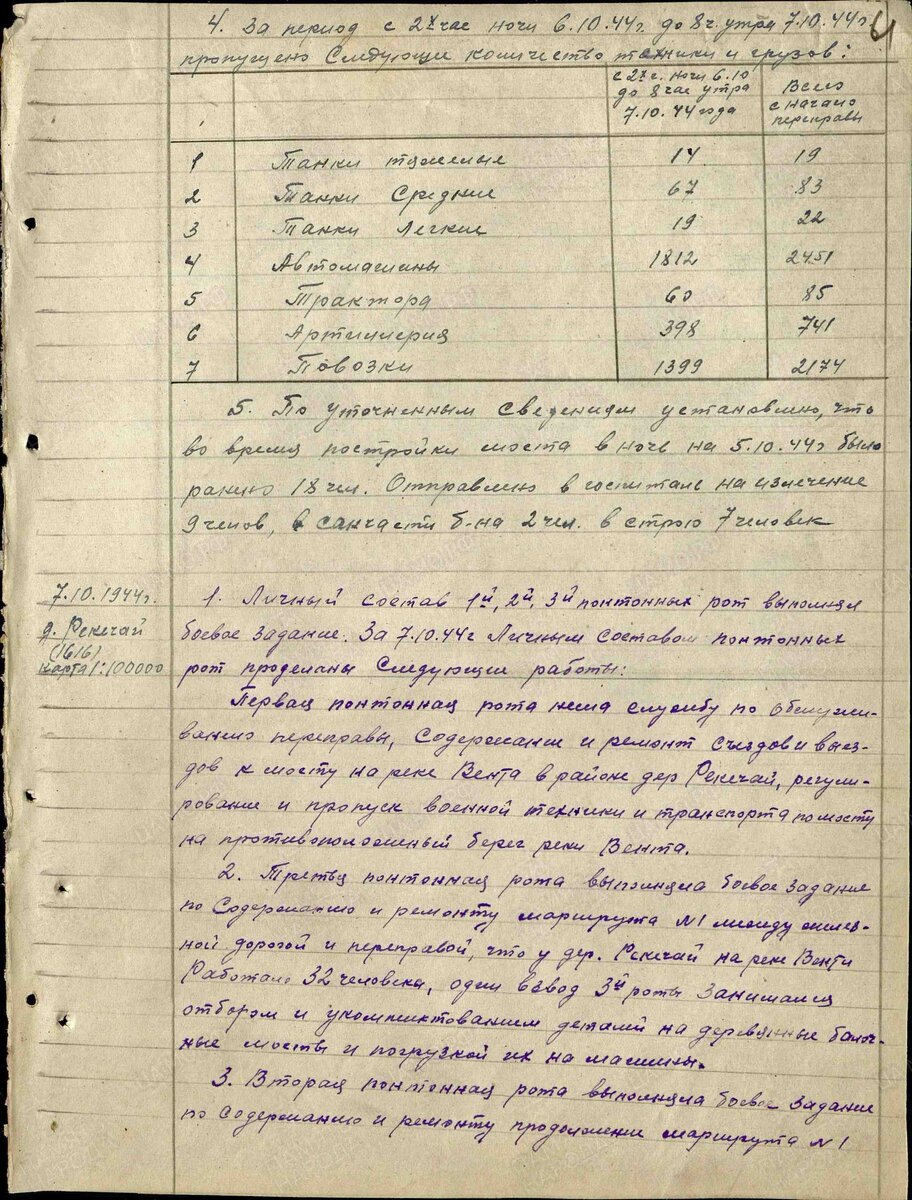 4. За период с 2х час ночи 6.10.44г. до 8ч. утра 7.10.44г
пропущено Следующие количество техники и грузов:
с 2х ч. ночи 6.10 до 8 час утра 7.10.44 года
Всего с начало переправы
1 Танки тяжелые 14 19
2 Танки Средние 67 83
3 Танки Легкие 19 22
4 Автомашины 1812 2451
5 Трактора 60 85
6 Артиллерия 398 741
7 Повозки 1399 2174
5. По уточненным сведениям установлено, что
во время постройки моста в ночь на 5.10.44г было
ранено 18 чел. Отправлено в госпиталь на излечение
9 челов, в санчасти б-на 2 чел. в строю 7 человек
7.10.1944г.
д. Рекечай
(616)
карта 1:100000
1. Личный состав 1й, 2й, 3й понтонных рот выполнял
боевое задание. За 7.10.44г Личным составом понтонных
рот проделаны Следующие работы:
Первая понтонная рота несла службу по обслужи-
ванию переправы, Содержание и ремонт съездов и выез-
дов к мосту на реке Вента в районе дер Рекечай, регули-
рование и пропуск военной техники и транспорта по мосту
на противоположный берег реки Вента.
2. Третья понтонная рота выполняла боевое задание
по Содержанию и ремонту маршрута N1 между желез-
ной дорогой и переправой, что у дер. Рекечай на реке Венти
Работало 32 человека, один взвод 3й роты занимался
отбором и укомплектованием деталей на деревянные балоч-
ные мосты и погрузкой их на машины.
3. Вторая понтонная рота выполняла боевое задание
по содержанию и ремонту продолжение маршрута N1